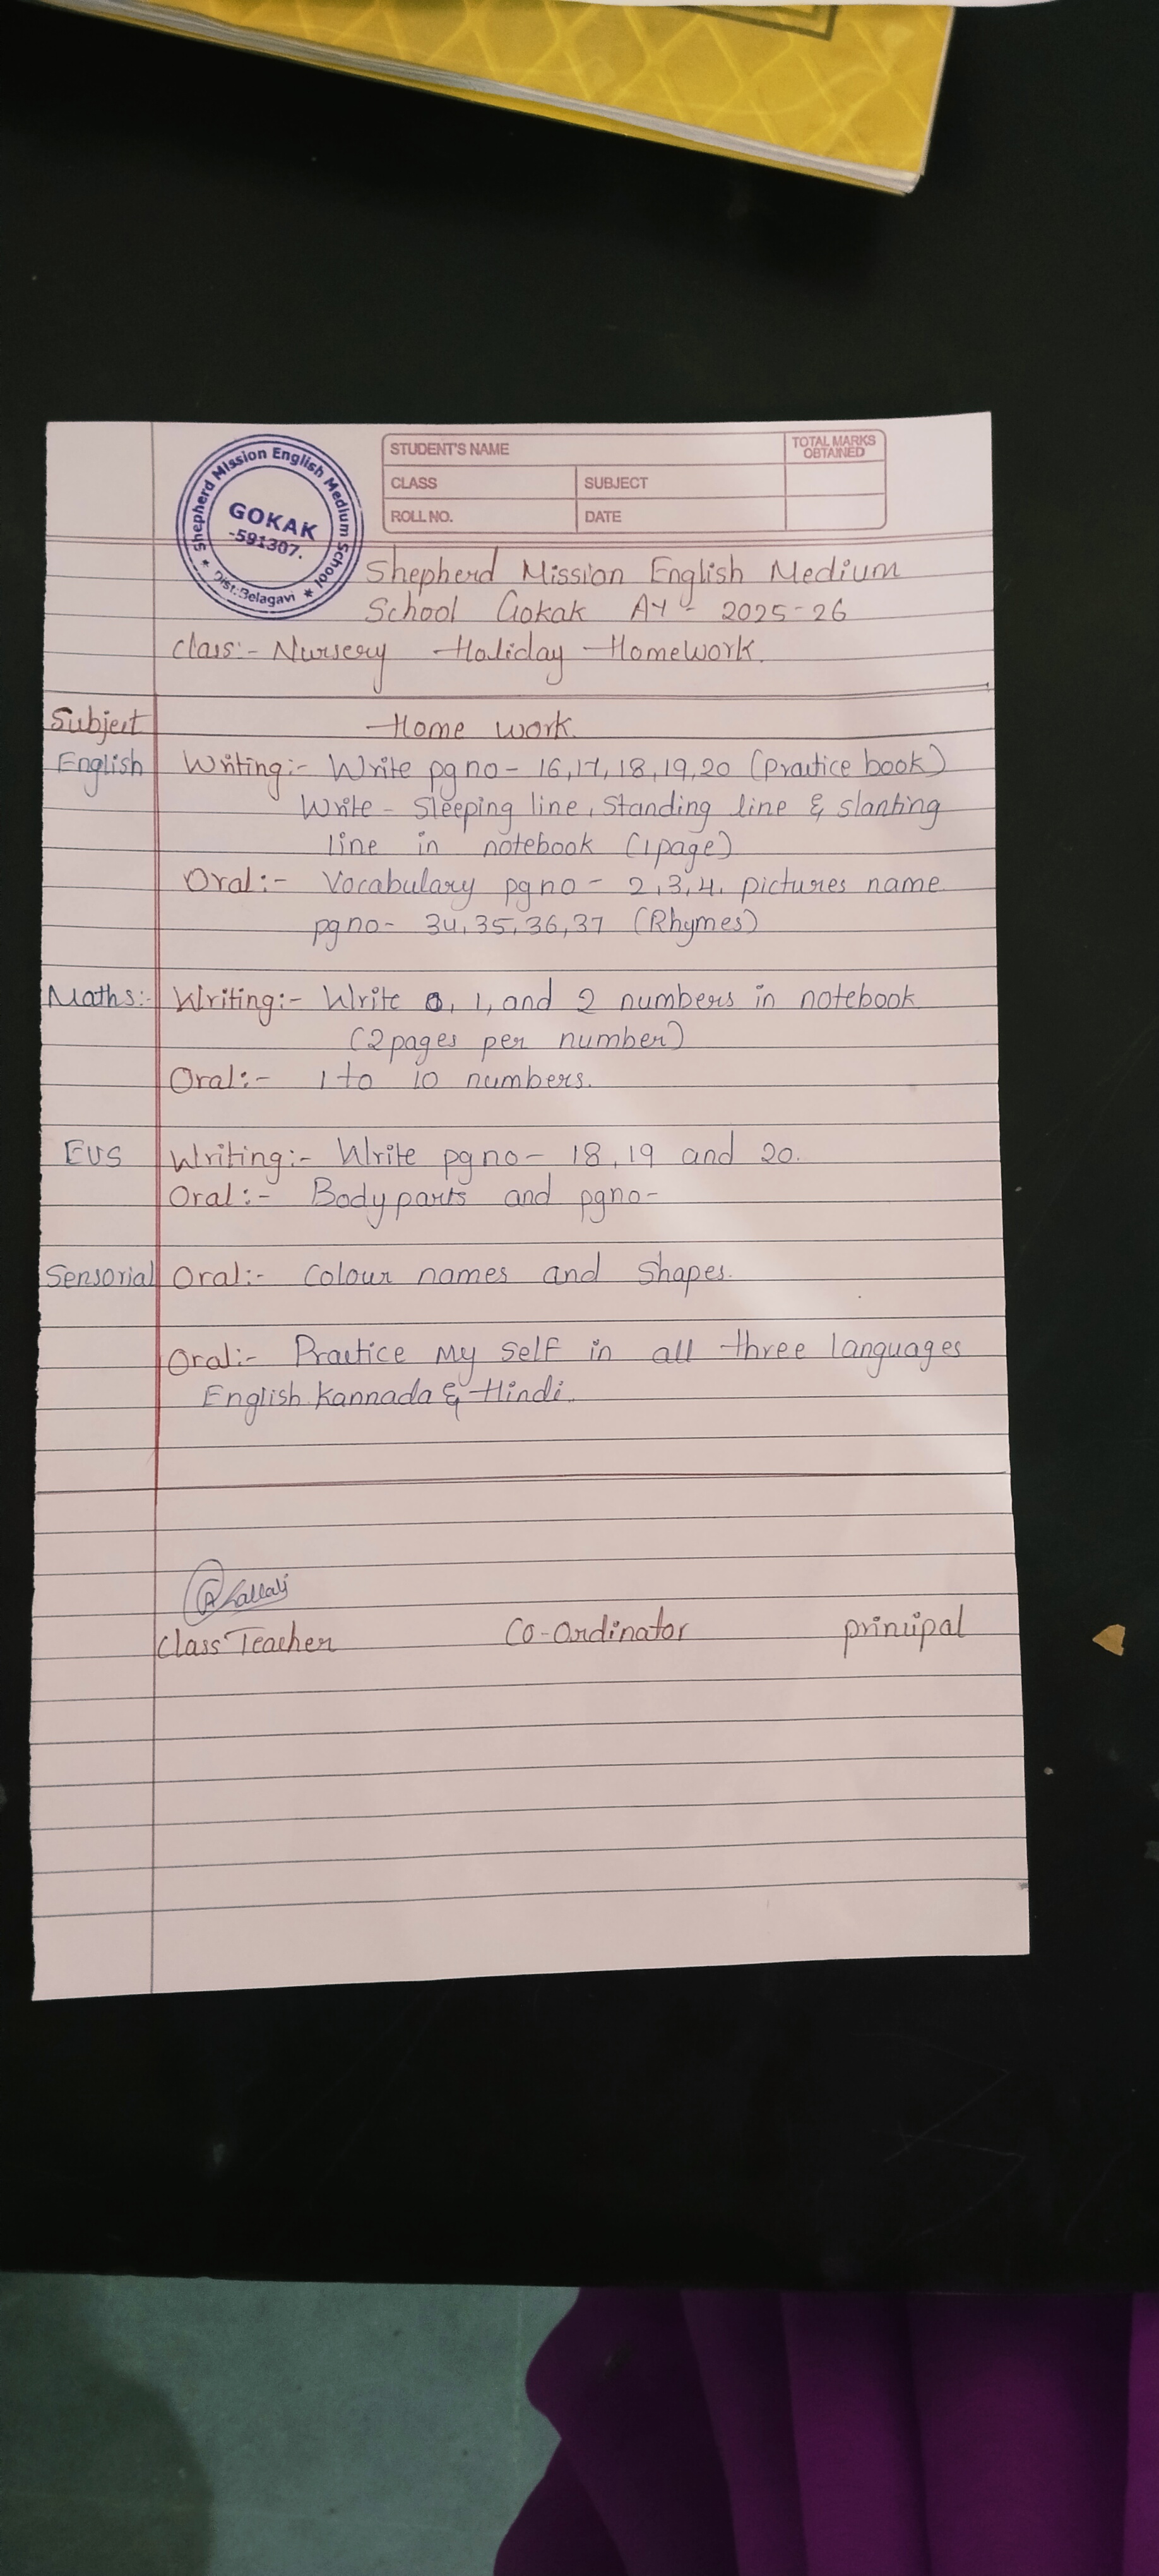 Shepherd Mission English Medium School
GOKAK
-591307.
★ Dist:Belagavi ★
STUDENT'S NAME
TOTAL MARKS OBTAINED
CLASS
SUBJECT
ROLL NO.
DATE
Shepherd Mission English Medium
School Gokak AY - 2025-26
Class:- Nursery Holiday Homework.
Subject Home work.
English Writing:- Write pg no- 16,17,18,19,20 (practice book)
Write - Sleeping line, Standing line & slanting
line in notebook (1 page)
Oral:- Vocabulary pg no - 2,3,4. pictures name
pg no- 34,35,36,37 (Rhymes)
Maths:- Writing:- Write 0, 1, and 2 numbers in notebook
(2 pages per number)
Oral:- 1 to 10 numbers.
EVS Writing:- Write pg no- 18,19 and 20.
Oral:- Body parts and pg no-
Sensorial Oral:- Colour names and Shapes.
Oral:- Practice My Self in all three languages
English. Kannada & Hindi.
Class Teacher Co-Ordinator principal